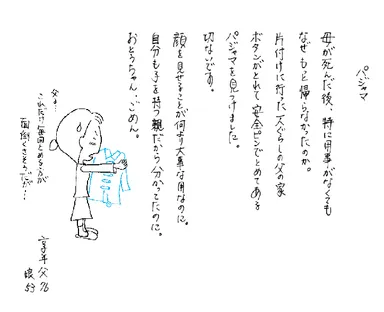 パジャマ
母が死んだ後、特に用事がなくても
なぜもっと帰らなかったのか。
片付けに行った一人ぐらしの父の家
ボタンがとれて安全ピンでとめてある
パジャマを見つけました。
切ないです。
顔を見せることが何より大事な用なのに。
自分も子を持つ親だから分かってたのに。
おとうちゃん、ごめん。
父よ…
これだけ毎回とめる方が
面倒くさそうだが…
享年父76
娘53